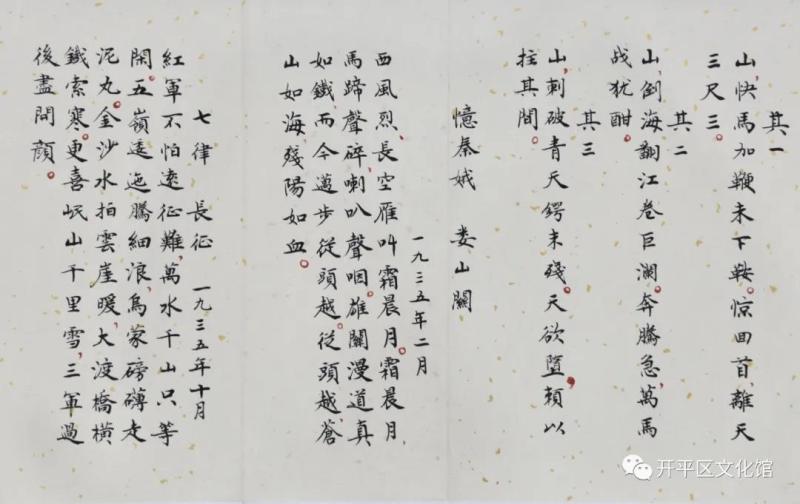 其一
山，快馬加鞭未下鞍。惊回首，離天
三尺三。
其二
山，倒海翻江卷巨澜。奔騰急，萬馬
战犹酣。
其三
山，刺破青天锷未殘。天欲墮，賴以
拄其間。
憶秦娥 娄山關
一九三五年二月
西風烈，長空雁叫霜晨月。霜晨月，
馬蹄聲碎，喇叭聲咽。雄關漫道真
如鐵，而今邁步從頭越。從頭越，蒼
山如海，殘陽如血。
七律 長征 一九三五年十月
紅軍不怕遠征難，萬水千山只等
閑。五嶺逶迤騰細浪，烏蒙磅礴走
泥丸。金沙水拍雲崖暖，大渡橋橫
鐵索寒。更喜岷山千里雪，三軍過
後盡開顔。
开平区文化馆